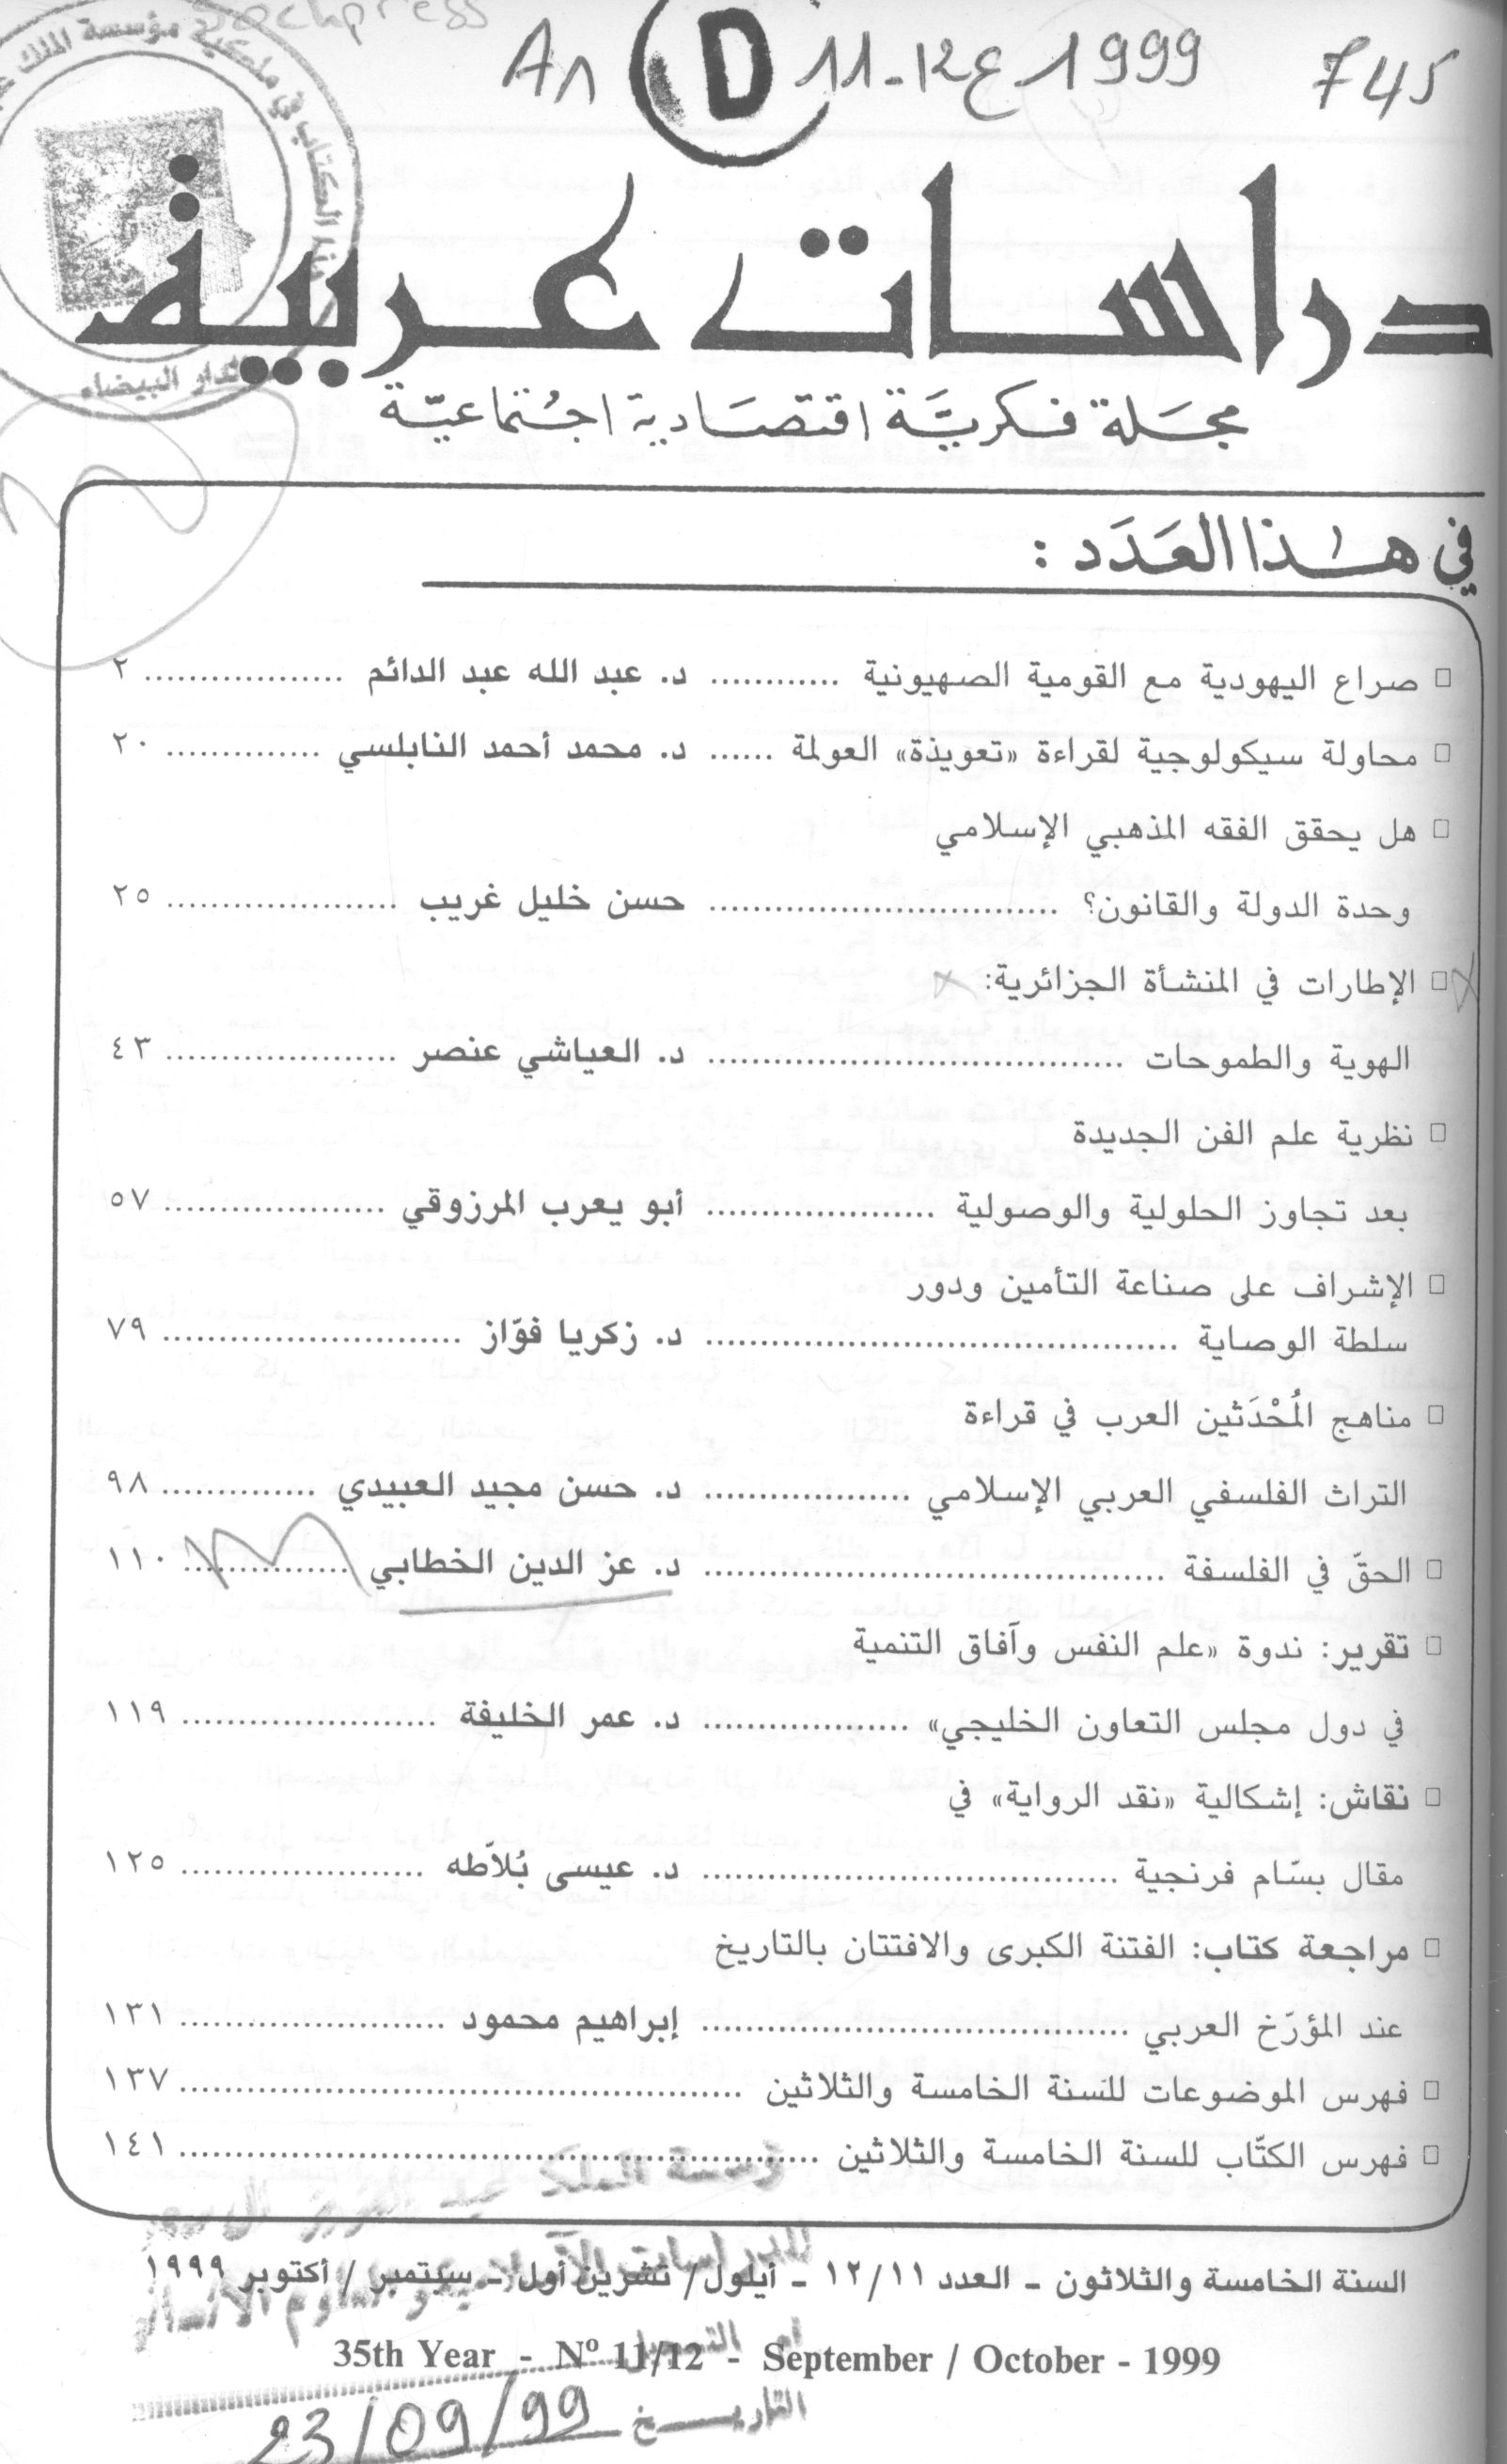 An D 11-12 ع 1999 745
هذا الكتاب في ملكية مؤسسة الملك
الدار البيضاء
دراسات عربية
مجَلة فكريَّة اقتصَادية اجتماعيّة
في هذا العَدَد :
□ صراع اليهودية مع القومية الصهيونية ............ د. عبد الله عبد الدائم .................. ٢
□ محاولة سيكولوجية لقراءة «تعويذة» العولمة ...... د. محمد أحمد النابلسي .............. ٢٠
□ هل يحقق الفقه المذهبي الإسلامي
وحدة الدولة والقانون؟ ................................ حسن خليل غريب ..................... ٢٥
□ الإطارات في المنشأة الجزائرية:
الهوية والطموحات ...................................... د. العياشي عنصر ..................... ٤٣
□ نظرية علم الفن الجديدة
بعد تجاوز الحلولية والوصولية ..................... أبو يعرب المرزوقي .................... ٥٧
□ الإشراف على صناعة التأمين ودور
سلطة الوصاية ........................................... د. زكريا فوّاز ........................... ٧٩
□ مناهج المُحْدَثين العرب في قراءة
التراث الفلسفي العربي الإسلامي ................... د. حسن مجيد العبيدي .............. ٩٨
□ الحقّ في الفلسفة .......................................... د. عز الدين الخطابي ............... ١١٠
□ تقرير: ندوة «علم النفس وآفاق التنمية
في دول مجلس التعاون الخليجي» ................... د. عمر الخليفة ....................... ١١٩
□ نقاش: إشكالية «نقد الرواية» في
مقال بسّام فرنجية ...................................... د. عيسى بُلاّطه ...................... ١٢٥
□ مراجعة كتاب: الفتنة الكبرى والافتتان بالتاريخ
عند المؤرّخ العربي ....................................... إبراهيم محمود ........................ ١٣١
□ فهرس الموضوعات للسنة الخامسة والثلاثين ................................................... ١٣٧
□ فهرس الكتّاب للسنة الخامسة والثلاثين .......................................................... ١٤١
السنة الخامسة والثلاثون - العدد ١٢/١١ - أيلول/ تشرين أول - سبتمبر / أكتوبر ١٩٩٩
35th Year - Nº 11/12 - September / October - 1999
التاريخ 23/09/99